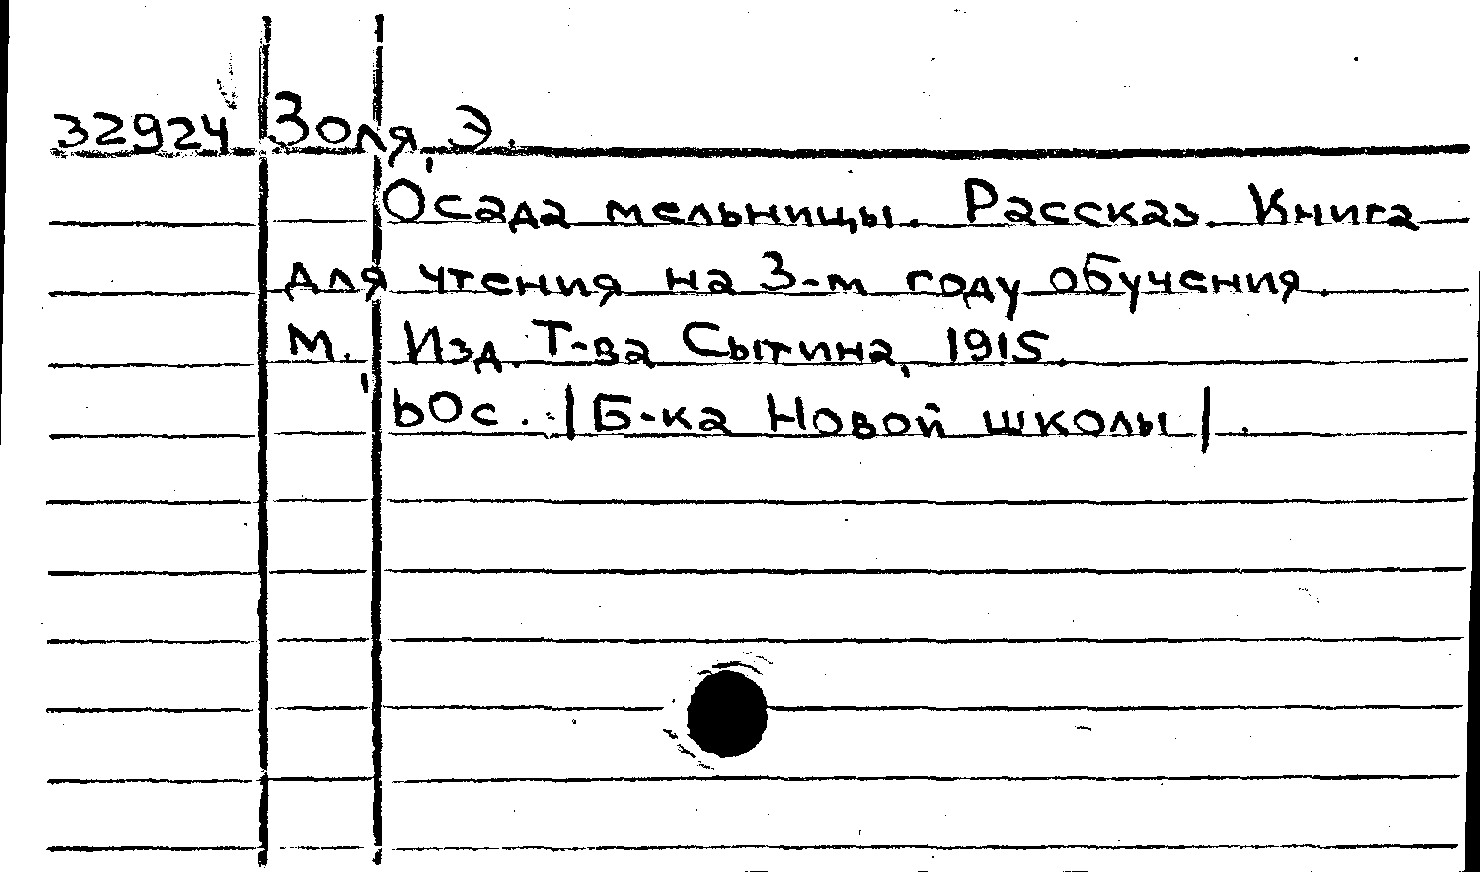 32924 Золя, Э.
Осада мельницы. Рассказ. Книга
для чтения на 3-м году обучения.
М., Изд. Т-ва Сытина, 1915.
60с. /Б-ка Новой школы/.